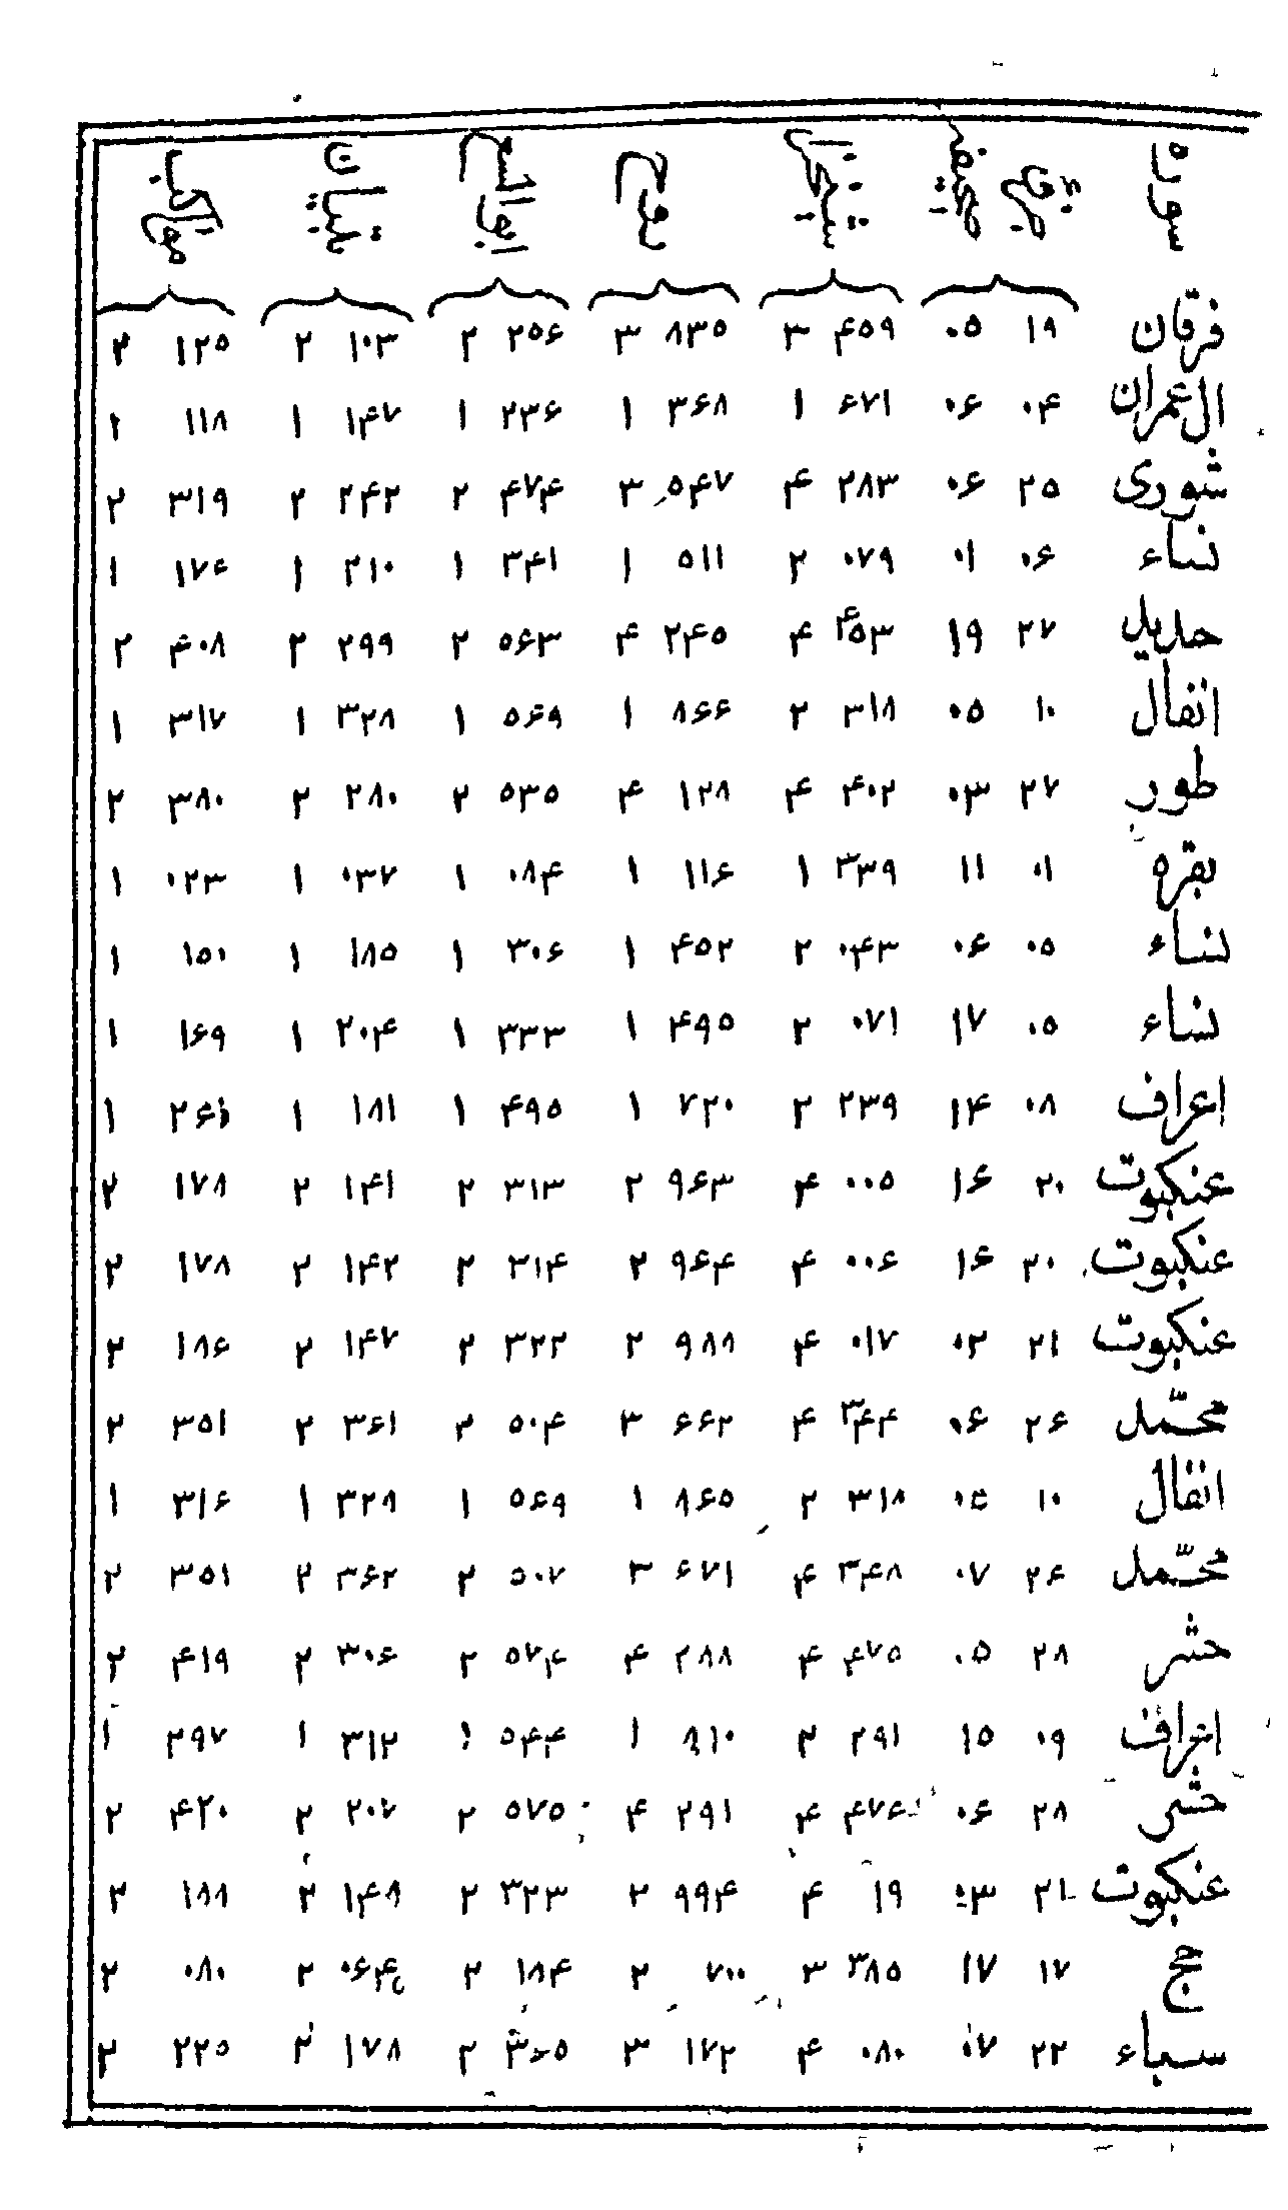 سوراه
فرقان ۱۹ ۰۵ ۴۵۹ ۳ ۸۳۵ ۳ ۲۵۶ ۲ ۱۰۳ ۲ ۱۲۵ ۲
ال عمران ۰۴ ۰۶ ۶۷۱ ۱ ۳۶۸ ۱ ۲۳۶ ۱ ۱۴۷ ۱ ۱۱۸ ۱
شوری ۲۵ ۰۶ ۲۸۳ ۴ ۵۴۷ ۳ ۴۷۴ ۲ ۲۴۲ ۲ ۳۱۹ ۲
نساء ۰۶ ۰۱ ۰۷۹ ۲ ۵۱۱ ۱ ۳۴۱ ۱ ۲۱۰ ۱ ۱۷۶ ۱
حدید ۲۷ ۱۹ ۴۵۳ ۴ ۲۴۵ ۴ ۵۶۳ ۲ ۲۹۹ ۲ ۴۰۸ ۲
انفال ۱۰ ۰۵ ۳۱۸ ۲ ۸۶۶ ۱ ۵۶۹ ۱ ۳۲۸ ۱ ۳۱۷ ۱
طور ۲۷ ۰۳ ۴۰۲ ۴ ۱۲۸ ۴ ۵۳۵ ۲ ۲۸۰ ۲ ۳۸۰ ۲
بقره ۰۱ ۱۱ ۳۳۹ ۱ ۱۱۶ ۱ ۰۸۴ ۱ ۰۳۷ ۱ ۰۲۳ ۱
نساء ۰۵ ۰۶ ۰۴۳ ۲ ۴۵۲ ۱ ۳۰۶ ۱ ۱۸۵ ۱ ۱۵۰ ۱
نساء ۰۵ ۱۷ ۰۷۱ ۲ ۴۹۵ ۱ ۳۳۳ ۱ ۲۰۴ ۱ ۱۶۹ ۱
اعراف ۰۸ ۱۴ ۲۳۹ ۲ ۷۲۰ ۱ ۴۹۵ ۱ ۱۸۱ ۱ ۱
عنکبوت ۲۰ ۱۶ ۰۰۵ ۴ ۹۶۳ ۲ ۳۱۳ ۲ ۱۴۱ ۲ ۱۷۸ ۲
عنکبوت ۲۰ ۱۶ ۰۰۶ ۴ ۹۶۴ ۲ ۳۱۴ ۲ ۱۴۲ ۲ ۱۷۸ ۲
عنکبوت ۲۱ ۰۲ ۰۱۷ ۴ ۹۸۸ ۲ ۳۲۲ ۲ ۱۴۷ ۲ ۱۸۶ ۲
محمّد ۲۶ ۰۶ ۳۴۴ ۴ ۶۶۲ ۳ ۵۰۴ ۲ ۳۶۱ ۲ ۳۵۱ ۲
انفال ۱۰ ۰۵ ۳۱۸ ۲ ۸۶۵ ۱ ۵۶۹ ۱ ۳۲۸ ۱ ۳۱۶ ۱
محمّد ۲۶ ۰۷ ۳۴۸ ۴ ۶۷۱ ۳ ۵۰۷ ۲ ۳۶۲ ۲ ۳۵۱ ۲
حشر ۲۸ ۰۵ ۴۷۵ ۴ ۲۸۸ ۴ ۵۷۴ ۲ ۳۰۶ ۲ ۴۱۹ ۲
اعراف ۰۹ ۱۵ ۲۹۱ ۲ ۸۱۰ ۱ ۵۴۴ ۱ ۳۱۲ ۱ ۲۹۷ ۱
حشر ۲۸ ۰۶ ۴۷۶ ۴ ۲۹۱ ۴ ۵۷۵ ۲ ۲۰۷ ۲ ۴۲۰ ۲
عنکبوت ۲۱ ۰۳ ۱۹ ۴ ۹۹۴ ۲ ۳۲۳ ۲ ۱۴۸ ۲ ۱۸۸ ۲
حج ۱۷ ۱۷ ۳۸۵ ۳ ۷۰۰ ۲ ۱۸۴ ۲ ۰۶۴ ۲ ۰۸۰ ۲
سباء ۲۲ ۰۷ ۰۸۰ ۴ ۱۷۲ ۳ ۳۶۵ ۲ ۱۷۸ ۲ ۲۲۵ ۲